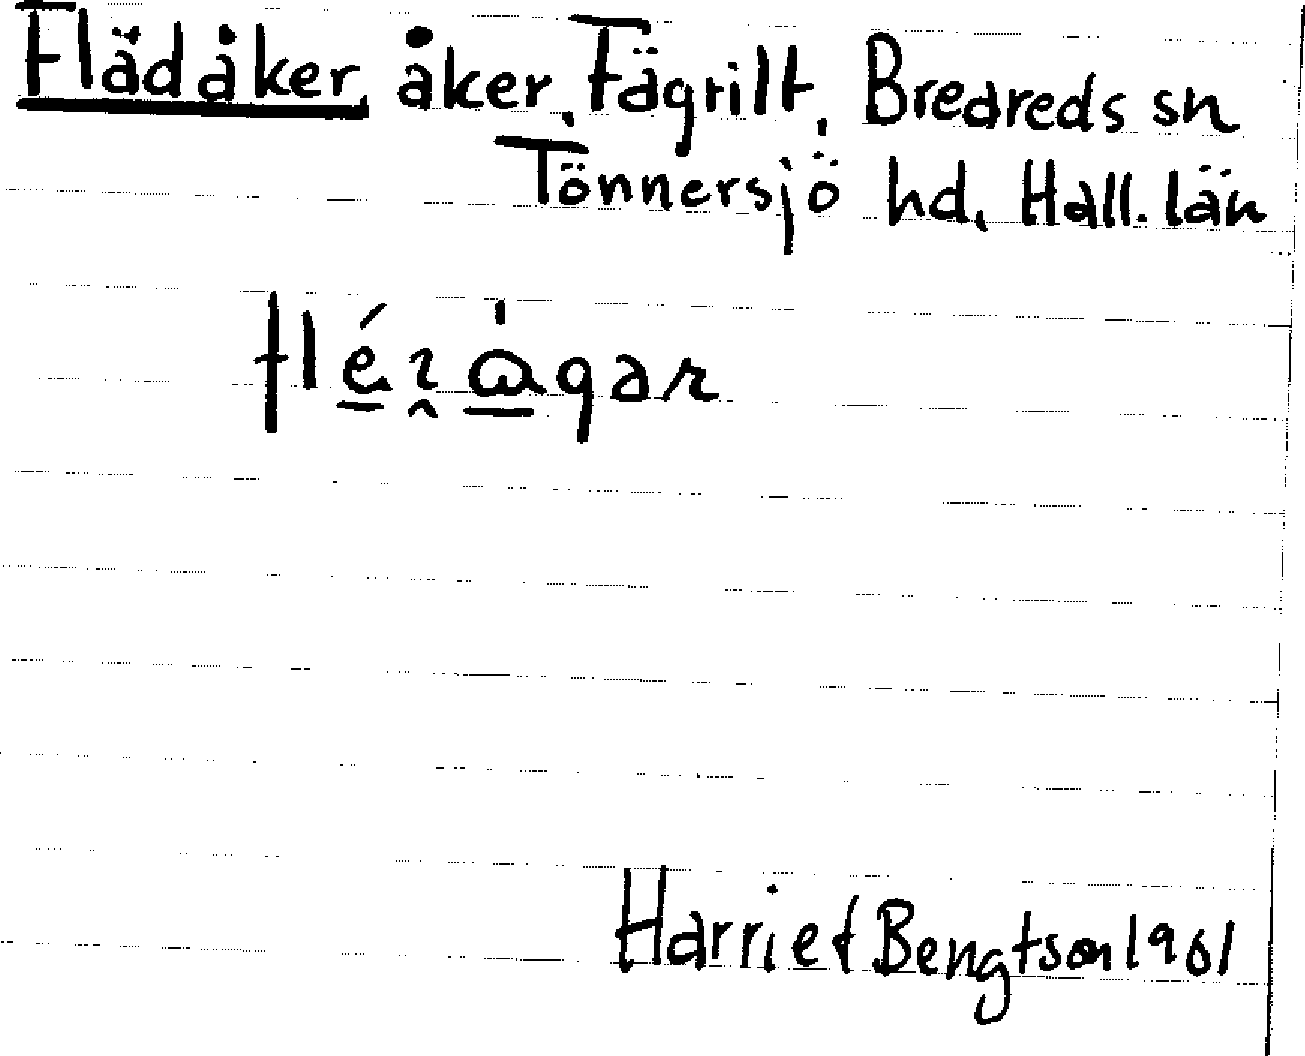 Flädåker åker, Fägrilt, Breareds sn
Tönnersjö hd, Hall. län
Harriet Bengtson 1961